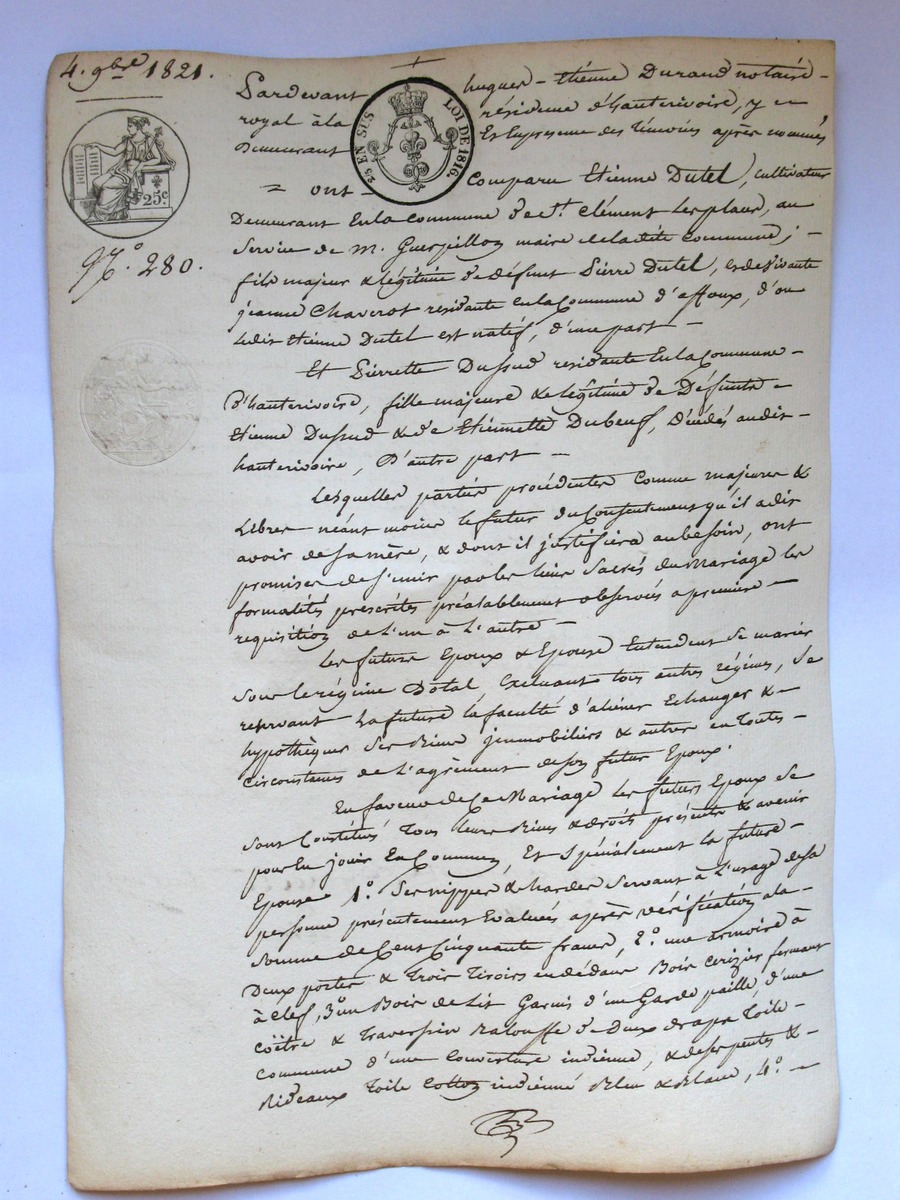 4. 9bre 1821.
25c
N.° 280.
25 EN SUS LOI DE 1816
Pardevant hugues-Etienne Durand notaire
royal à la résidence d'hauterivoire, y
Demeurant Et en presence des témoins après nommés
= ont comparu Etienne Dutel, cultivateur
Demeurant En la commune de St. Clément les places, au
Service de m. Guerpillon maire de la dite commune;
fils majeur & légitime de défunt Pierre Dutel, et de vivante
jeanne Chaverot residante En la Commune d'affoux, d'ou
ledit Etienne Dutel est natif, d'une part —
Et Pierrette Dussud residante En la Commune
D'hauterivoire, fille majeure & légitime de Défunts
Etienne Dussud & de Etiennette Dubeuf, Décédés audit
hauterivoire, D'autre part —
Lesquelles parties procédentes comme majeures &
Libres néant moins le futur du Consentement qu'il a dit
avoir de sa mère, & dont il justifiera au besoin, ont
promises de s'unir par les liens Sacrés du Mariage les
formalités prescrites préalablement observées a premiere
requisition de L'un à L'autre —
Les futurs Epoux & Epouse Entendent se marier
Sous le régime Dotal, Excluant tous autres régimes, se
reservant la future la faculté d'aliéner Echanger &
hypothéquer Ses Biens jmmobiliers & autres en toutes
circonstances de L'agrément de son futur Epoux.
En faveur de Ce Mariage les futurs Epoux se
sont Constitués tous leurs Biens & droits présents & avenir
pour En jouir En Commun, Et Spécialement la future
Epouse 1.° Ses nippes & hardes Servant à L'usage de sa
personne présentement Evaluées après vérification a la
Somme de Cent Cinquante francs, 2.° une armoire à
Deux portes & trois tiroirs en dédans Bois Cerizier fermant
à clef, 3.° un Bois de Lit Garnis d'un Garde paille, d'une
coëtre & traversin Balouffe de Deux draps toile
commune d'une Couverture indienne, & de serpentes &
Rideaux toile Cotton indienne Bleu & Blanc, 4.° —